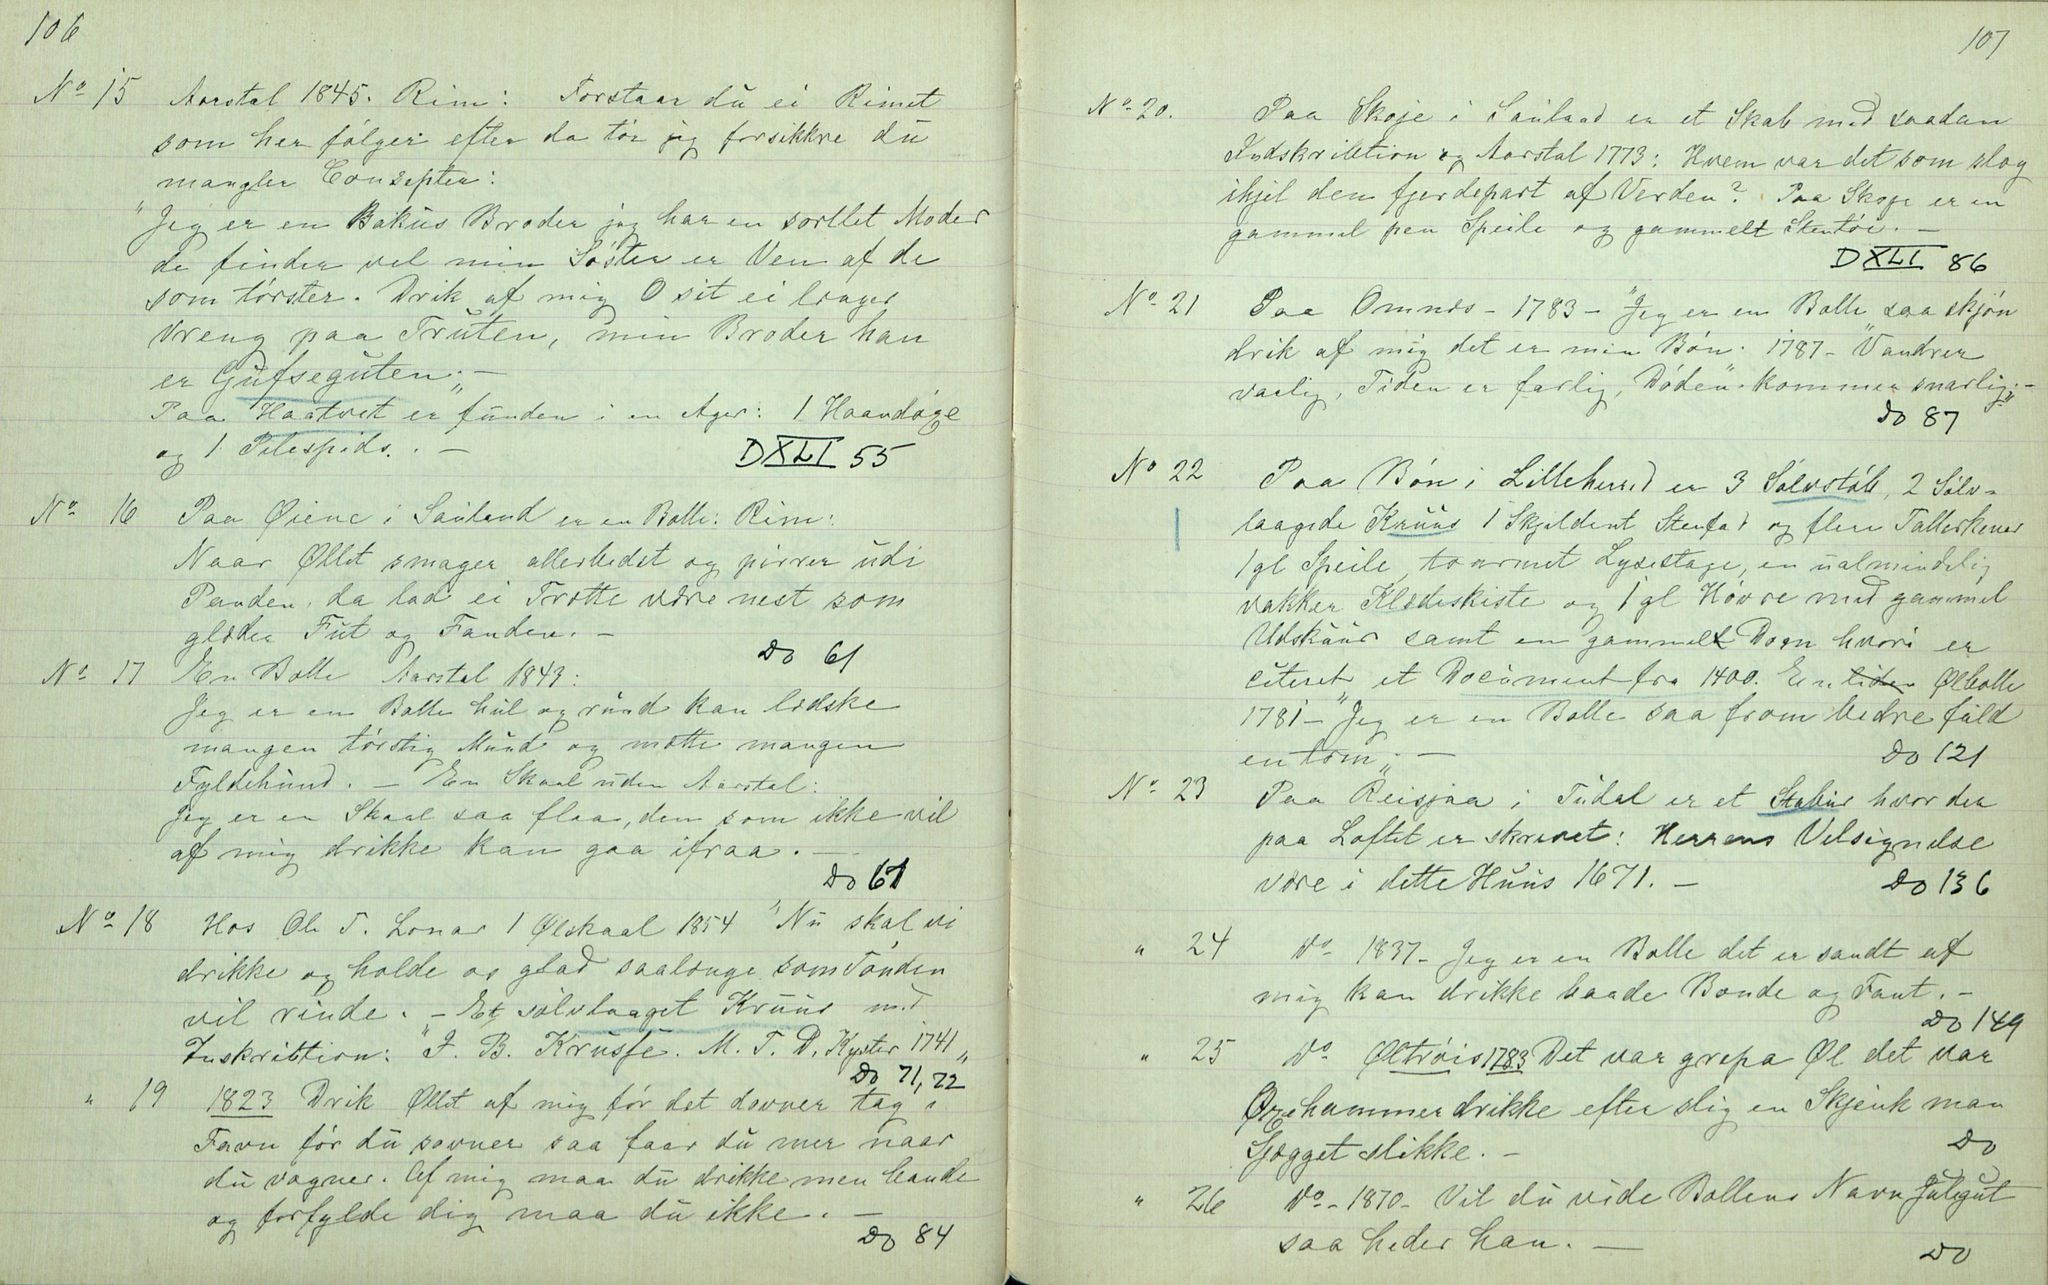 106
No 15 Aarstal 1845. Rim: Forstaar du ei Rimet
som her følger efter da tør jeg forsikkre du
mangler Consepter:
"Jeg er en Bakus Broder jeg har en sortlet Moder
de finder vel min Søster er Ven af de
som tørster. Drik af mig O sit ei længer
vreng paa Truten, min Broder han
er Gufseguten." –
Paa Haatvet er funden i en Ager: 1 Haandøxe
og 1 Pilespids. –
DXLI 55
No 16 Paa Øiene i Sauland er en Bolle: Rim:
Naar Øllet smager allerbedst og pirrer udi
Panden, da lad ei Trætte være nest som
glæder Fut og Fanden. –
Do 61
No 17 En Bolle Aarstal 1843:
Jeg er en Bolle hul og rund kan ledske
mangen tørstig Mund og mætte mangen
Fyldehund. – En Skaal uden Aarstal:
Jeg er en Skaal saa flaa, den som ikke vil
af mig drikke kan gaa ifraa. –
Do 67
No 18 Hos Ole T. Lonar 1 Ølskaal 1854 "Nu skal vi
drikke og holde os glad saalænge som Tønden
vil rinde. – Et sølvlaaget Kruus med
Inskribtion: "J. B. Krusfe. M. T. D. Kyster 1741"
Do 71, 72
" 19 1823 Drik Øllet af mig før det dovner tag i
Favn før du sovner saa faar du mer naar
du vagner. Af mig maa du drikke men bande
og forfylde dig maa du ikke. –
Do 84
107
No 20. Paa Skoje i Sauland er et Skab med saadan
Indskribtion og Aarstal 1773: Hvem var det som slog
ihjel den fjerdepart af Verden? Paa Skoje er en
gammel pen Speile og gammelt Stentøi. –
DXLI 86
No 21 Paa Omnes – 1783 – "Jeg er en Bolle saa skjøn
drik af mig det er min Bøn. 1787 – "Vandrer
varlig, Tiden er farlig, Døden kommer snarlig". –
Do 87
No 22 Paa Bøn i Lilleherred er 3 Sølvstøb, 2 Sølv-
laagede Kruus 1 Skjeldent Stenfad og flere Tallerkener
1 gl Speile, toarmet Lysestage, en ualmindelig
vakker Klædeskiste og 1 gl Høvre med gammel
Udskuur samt en gammelt Dom hvori er
citeret et Document fra 1400. En liden Ølbolle
1781 – "Jeg er en Bolle saa from bedre fuld
en tom". –
Do 121
No 23 Paa Reisjaa i Tudal er et Stabur hvor der
paa Loftet er skrevet: Herrens Velsignelse
være i dette Huus 1671. –
Do 136
" 24 do 1837 – Jeg er en Bolle det er sandt af
mig kan drikke baade Bonde og Fant. –
Do 149
" 25 do Øltrøis 1783 Det var grepa Øl det var
Øxehammer drikke efter slig en Skjenk man
Skjægget slikke. –
Do
" 26 do – 1870 – Vil du vide Bollens Navn Julegut
saa heder han. –
Do